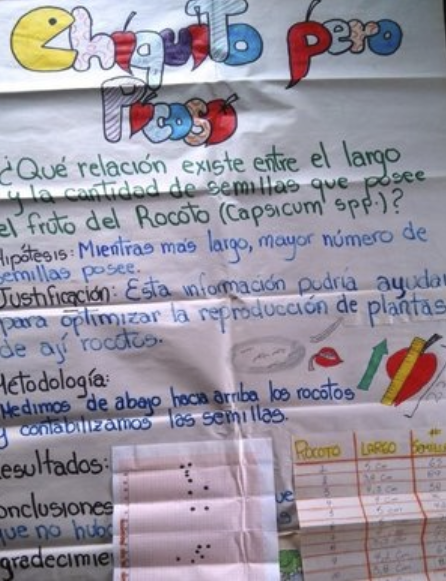 Chiquito pero
Picoso
¿Qué relación existe entre el largo
y la cantidad de semillas que posee
el fruto del Rocoto (Capsicum spp.)?
Hipótesis: Mientras más largo, mayor número de
semillas posee.
Justificación: Esta información podría ayudar
para optimizar la reproducción de plantas
de ají rocotos.
Metodología:
Medimos de abajo hacia arriba los rocotos
y contabilizamos las semillas.
Resultados:
ROCOTO LARGO SEMILL
5 cm
onclusiones
que no hubo
gradecimie